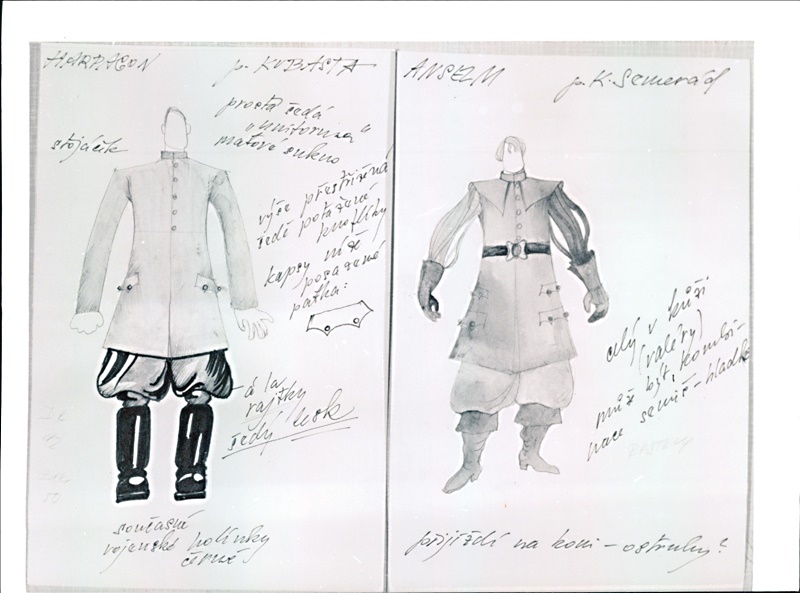 HARPAGON p. KUBASTA
prostá šedá
„uniforma“
matové sukno
stojáček
výše přestřižená
šedě potažené
knoflíky
kapsy níže
posazené
patka:
á la
rajtky
šedý lesk
současné
vojenské holínky
černé
ANSELM p. K. Semerád
celý v kůži
(valéry)
může být, kombi-
nace semiš - hladká
přijíždí na koni - ostruhy?